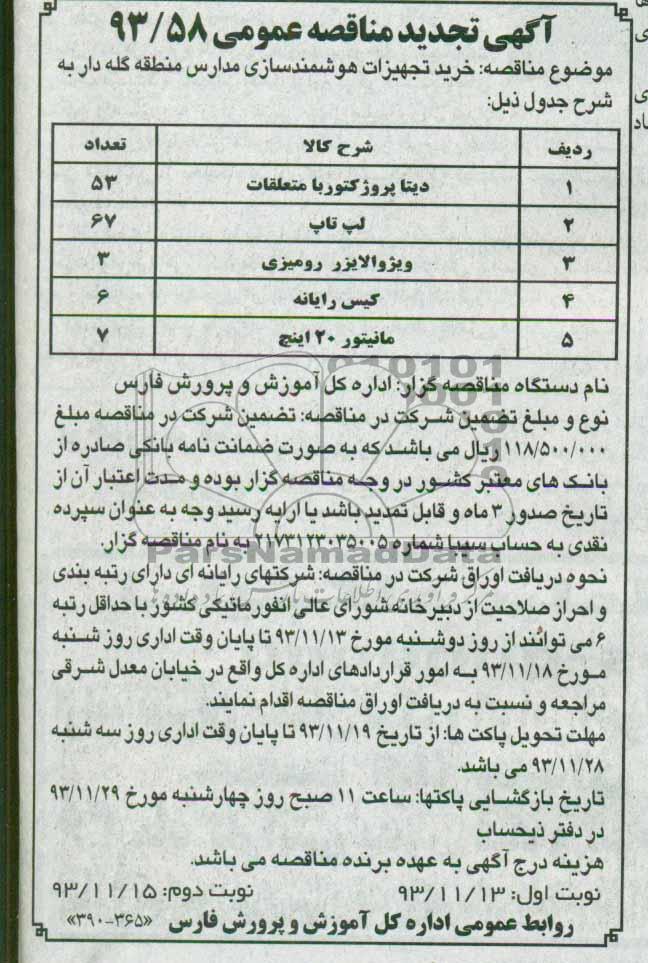 آگهی تجدید مناقصه عمومی ۹۳/۵۸
موضوع مناقصه: خرید تجهیزات هوشمندسازی مدارس منطقه گله دار به
شرح جدول ذیل:
ردیف شرح کالا تعداد
۱ دیتا پروژکتوربا متعلقات ۵۳
۲ لپ تاپ ۶۷
۳ ویژوالایزر رومیزی ۳
۴ کیس رایانه ۶
۵ مانیتور ۲۰ اینچ ۷
نام دستگاه مناقصه گزار: اداره کل آموزش و پرورش فارس
نوع و مبلغ تضمین شرکت در مناقصه: تضمین شرکت در مناقصه مبلغ
۱۱۸/۵۰۰/۰۰۰ ریال می باشد که به صورت ضمانت نامه بانکی صادره از
بانک های معتبر کشور در وجه مناقصه گزار بوده و مدت اعتبار آن از
تاریخ صدور ۳ ماه و قابل تمدید باشد یا ارایه رسید وجه به عنوان سپرده
نقدی به حساب سیبا شماره ۲۱۷۳۱۲۳۰۳۵۰۰۵ به نام مناقصه گزار.
ParsNamadData
نحوه دریافت اوراق شرکت در مناقصه: شرکتهای رایانه ای دارای رتبه بندی
و احراز صلاحیت از دبیرخانه شورای عالی انفورماتیکی کشور با حداقل رتبه
۶ می توانند از روز دوشنبه مورخ ۹۳/۱۱/۱۳ تا پایان وقت اداری روز شنبه
مورخ ۹۳/۱۱/۱۸ به امور قراردادهای اداره کل واقع در خیابان معدل شرقی
مراجعه و نسبت به دریافت اوراق مناقصه اقدام نمایند.
مهلت تحویل پاکت ها: از تاریخ ۹۳/۱۱/۱۹ تا پایان وقت اداری روز سه شنبه
۹۳/۱۱/۲۸ می باشد.
تاریخ بازگشایی پاکتها: ساعت ۱۱ صبح روز چهارشنبه مورخ ۹۳/۱۱/۲۹
در دفتر ذیحساب
هزینه درج آگهی به عهده برنده مناقصه می باشد.
نوبت اول: ۹۳/۱۱/۱۳ نوبت دوم: ۹۳/۱۱/۱۵
روابط عمومی اداره کل آموزش و پرورش فارس «۳۶۵-۳۹۰»